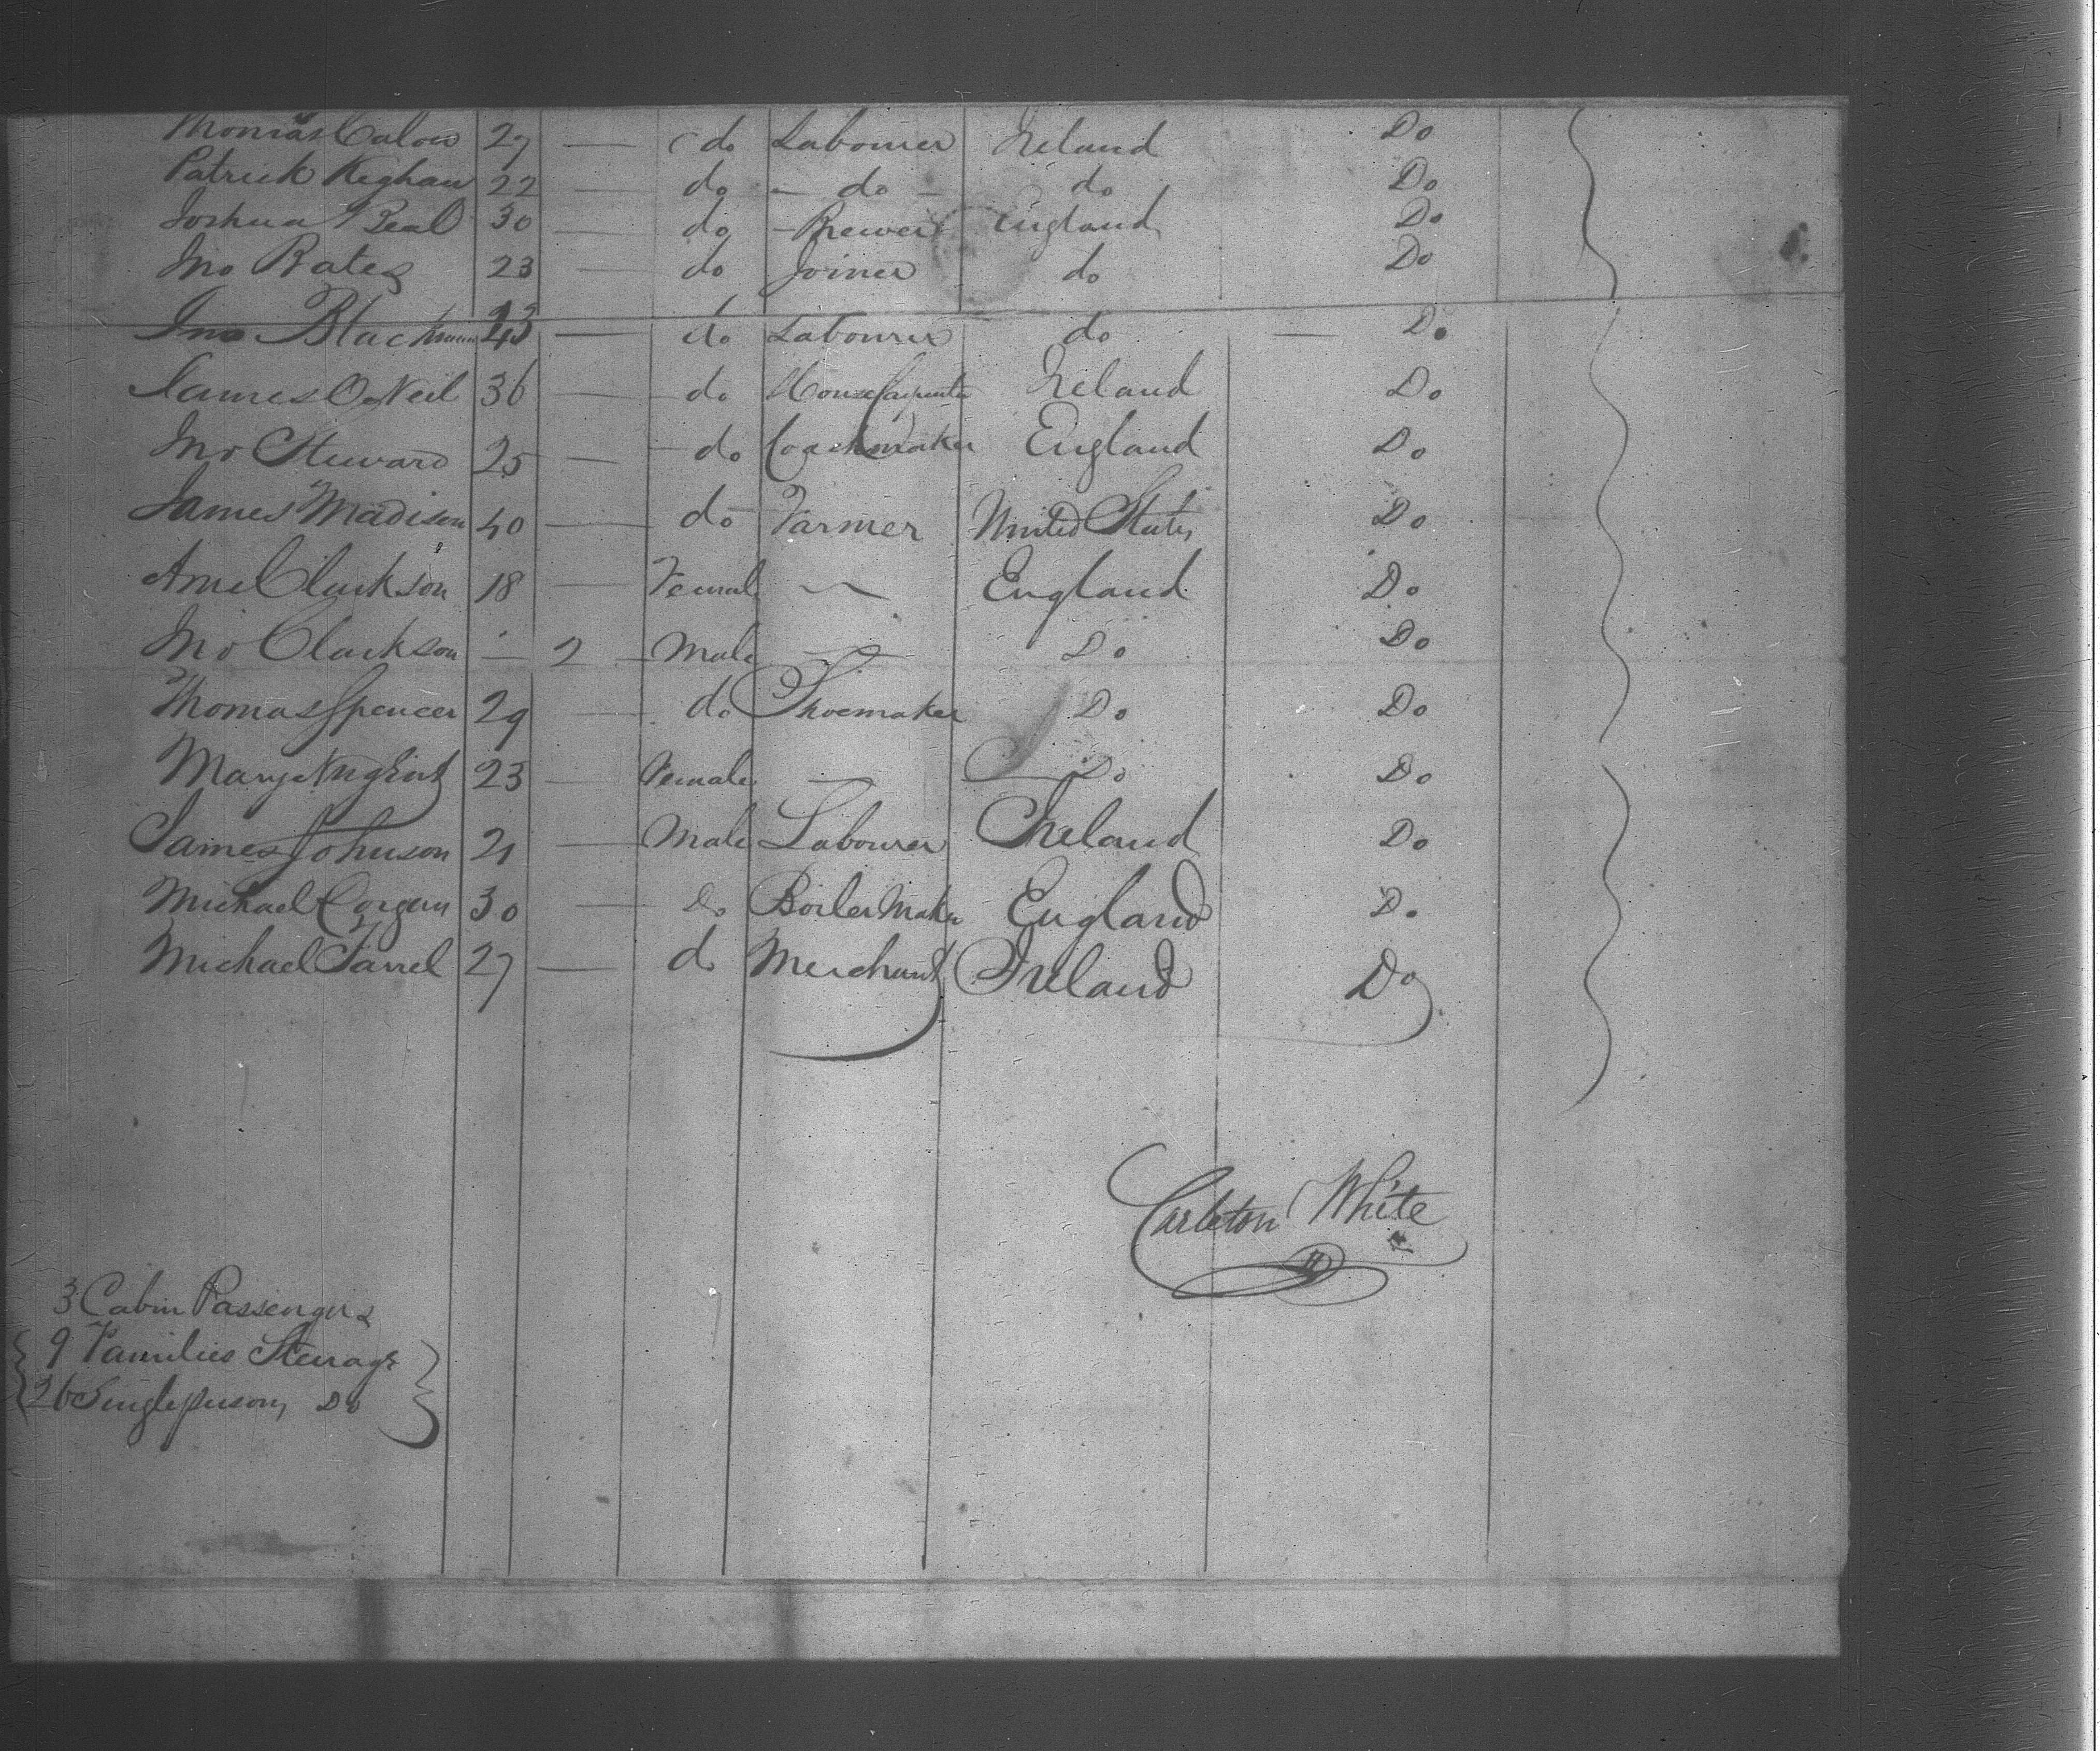 Thomas Calow 27 — do Labourer Ireland Do
Patrick Keghan 22 — do — do — do Do
Joshua Beal 30 — do — Brewer England Do
Jno Bates 23 — do Joiner do Do
Jno Blackman — do Labourer do — Do
James O Neil 36 — do House Carpenter Ireland Do
Jno Steward 25 — do Coachmaker England Do
James Madison 40 — do Farmer United States Do
Ame Clarkson 18 — Female — England Do
Jno Clarkson — 2 Male — Do Do
Thomas Spencer 29 — do Shoemaker Do Do
Mary Nugent 23 — Female — Do Do
James Johnson 21 — Male Labourer Ireland Do
Michael Corgan 30 — Do Boiler Maker England Do
Michael Farrel 27 — do Merchant Ireland Do
Carleton White
3 Cabin Passengers
9 Families Steerage
26 Single persons Do